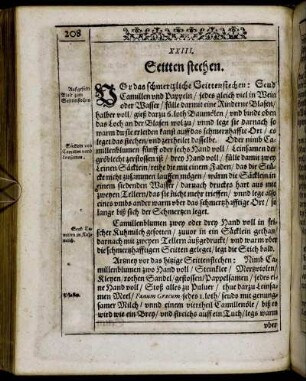 208
XXIII.
Seitten stechen.
VOr das schmertzliche Seittenstechen: Seud
Camillen vnd Pappeln / jedes gleich viel in Wein
oder Wasser / fülle darmit eine Rinderne Blasen /
halber voll / gieß darzu 6. loth Baumölen / vnd binde oben
das Loch an der Blasen wol zu / vnd lege sie darnach so
warm du sie erleiden kanst auff das schmertzhaffte Ort / es
leget das stechen / vnd zertheilet dasselbe. Oder nimb Ca-
millenblumen fünff oder sechs Hand voll / Leinsamen der
gröblecht gestossen ist / drey Hand voll / fülle damit zwey
Leinen Säcklein / nehe die mit einem Faden / das die Stü-
cke nicht zusammen lauffen mögen / wärme die Säcklein in
einem siedenden Wasser / darnach druckts hart aus mit
zweyen Tellern / das sie nicht mehr trieffen / vnnd lege also
eines vmbs ander warm vber das schmertzhafftige Ort / so
lange biß sich der Schmertzen leget.
Camillenblumen zwey oder drey Hand voll in fri-
scher Kuhmilch gesotten / zuvor in ein Säcklein gethan /
darnach mit zweyen Tellern außgedruckt / vnd warm vber
die schmertzhafftigen Seitten geleget / legt die Stich bald.
Artzney vor das hitzige Seittenstechen: Nimb Ca-
millenblumen zwo Hand voll /
Kleyen / rothen Sandel / gestossen / Pappelsamen / jedes ei-
ne Hand voll / Stoß alles zu Pulver / thue darzu Leinsa-
men Meel / Fœnum Græcum jedes 1. loth / seuds mit genung-
samer Milch / vnnd einem viertheil Camillenöle / biß es
wird wie ein Brey / vnd streichs auff ein Tuch / legs warm
vber